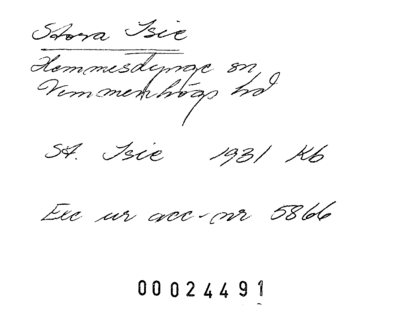 Stora Isie
Hemmesdynge sn
Vemmenhögs hd
St. Isie 1931 Kb
Exc ur acc-nr 5866
00024491